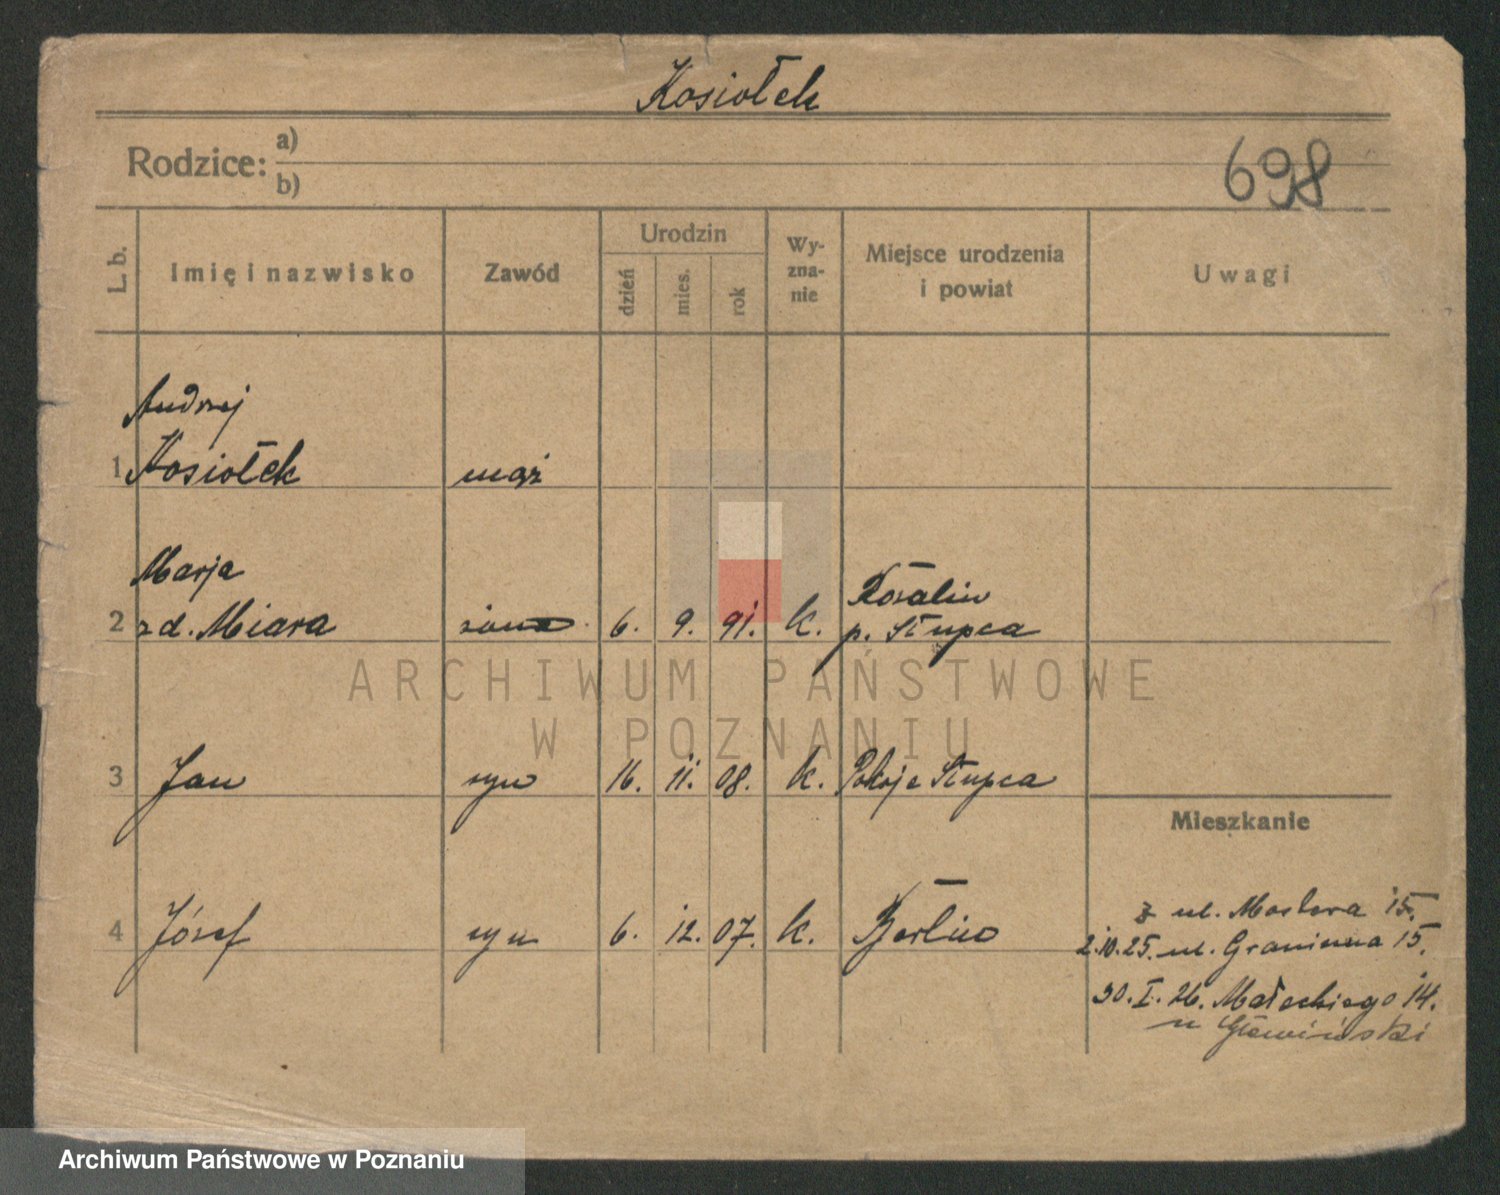 Kosiołek
698
Rodzice: a)
b)
L. b.
Imię i nazwisko
Zawód
Urodzin
dzień
mies.
rok
Wy-
zna-
nie
Miejsce urodzenia
i powiat
Uwagi
Andrzej
1 Kosiołek mąż
Marja
2 zd. Miara żona 6. 9. 91. k. Rozalin
p. Słupca
3 Jan syn 16. 11. 08. k. Słupca
Mieszkanie
4 Józef syn 6. 12. 07. k. Berlin
z ul. Mostowa 15.
2.10.25. ul. Graniczna 15.
30. I. 26. Małeckiego 14.
u
ARCHIWUM PAŃSTWOWE
W POZNANIU
Archiwum Państwowe w Poznaniu